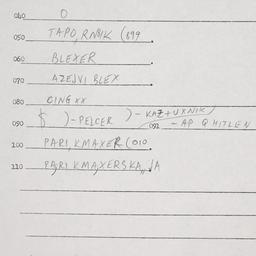 040 O
050 TAPO, RNIK (099
060 BLEXER
070 AZEJVI BLEX
080 CING XX
)- KAZ+UXNIK/
090 )-PELCER 092 - AP Q HITLEN
100 PARI, KMAXER (010
110 PA,RI KMA,XERSKA,, JA